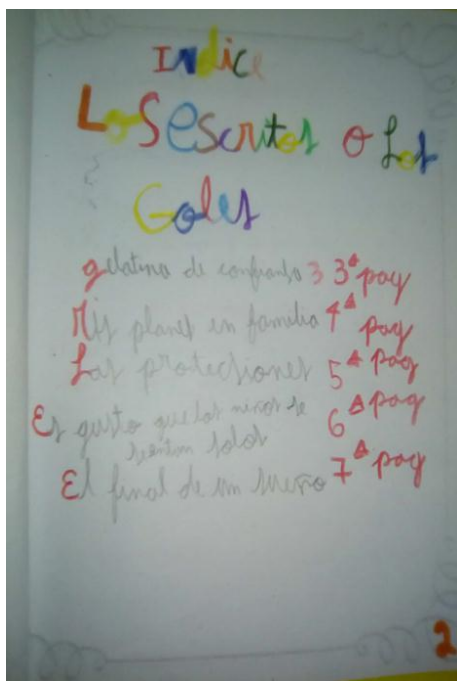 Indice
Los Escritos o Los
Goles
gelatina de confianza 3 3ª pag
Mis planes en familia 4ª pag
Las protecsiones 5ª pag
Es gusto que los niños se 6ª pag
sientan solos
El final de un sueño 7ª pag
2